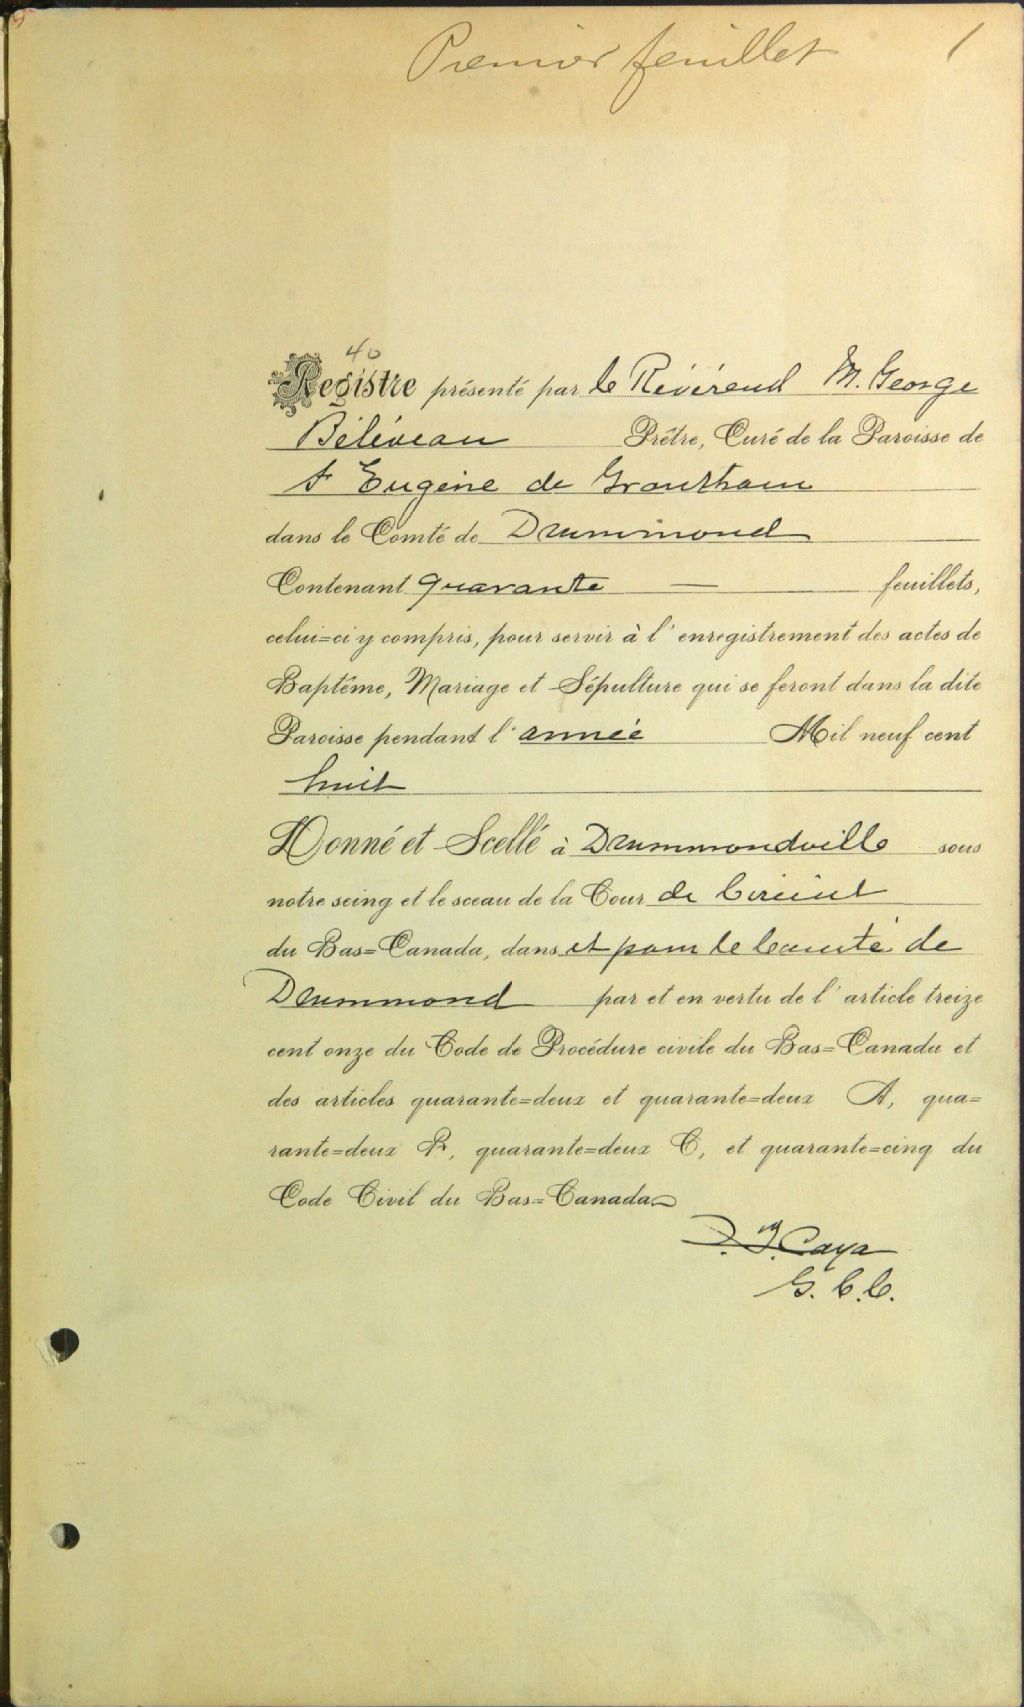 Premier feuillet 1
40
Registre présenté par le Révérend M. George
Béliveau Prêtre, Curé de la Paroisse de
St Eugène de Grantham
dans le Comté de Drummond
Contenant quarante — feuillets,
celui=ci y compris, pour servir à l'enregistrement des actes de
Baptême, Mariage et Sépulture qui se feront dans la dite
Paroisse pendant l'année Mil neuf cent
huit
Donné et Scellé à Drummondville sous
notre seing et le sceau de la Cour de Circuit
du Bas=Canada, dans et pour le Comté de
Drummond par et en vertu de l'article treize
cent onze du Code de Procédure civile du Bas=Canada et
des articles quarante=deux et quarante=deux A, qua=
rante=deux B, quarante=deux C, et quarante=cinq du
Code Civil du Bas=Canada
J. Caya
G. C. C.